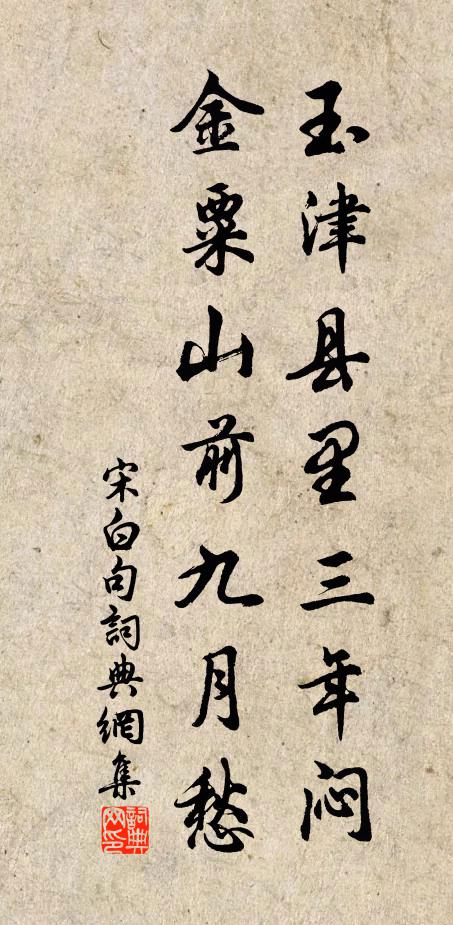 玉津县里三年闷
金粟山前九月愁
宋白句詞典網集
詞典网印